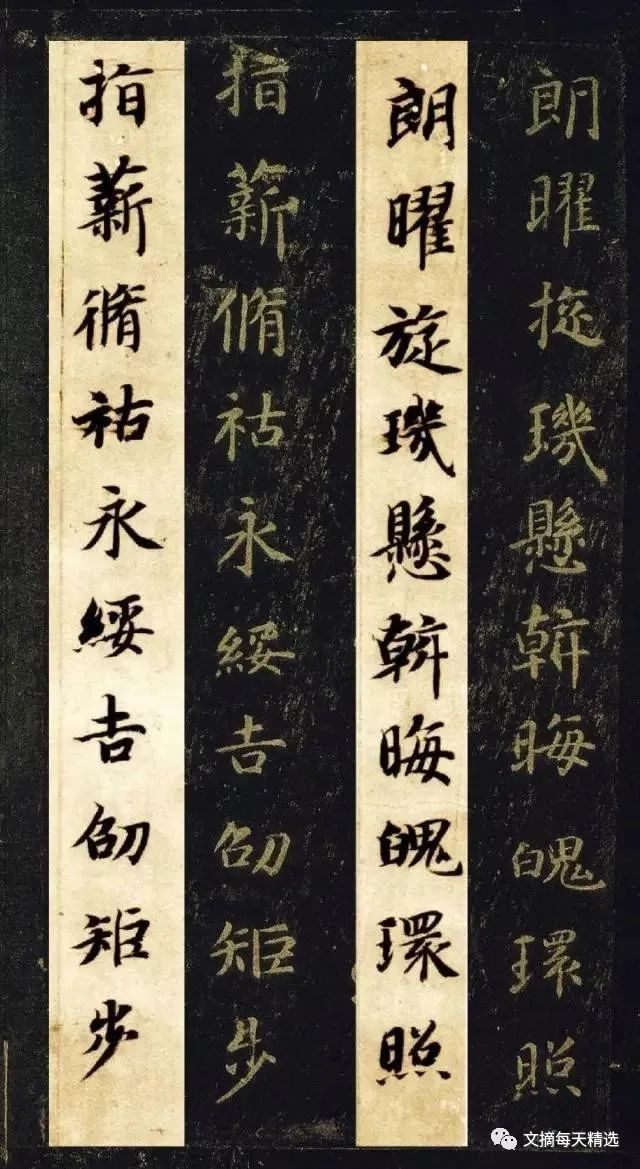 朗曜旋璣懸斡晦魄環照
朗曜旋璣懸斡晦魄環照
指薪脩祜永綏吉劭矩步
指薪脩祜永綏吉劭矩步
文摘每天精选